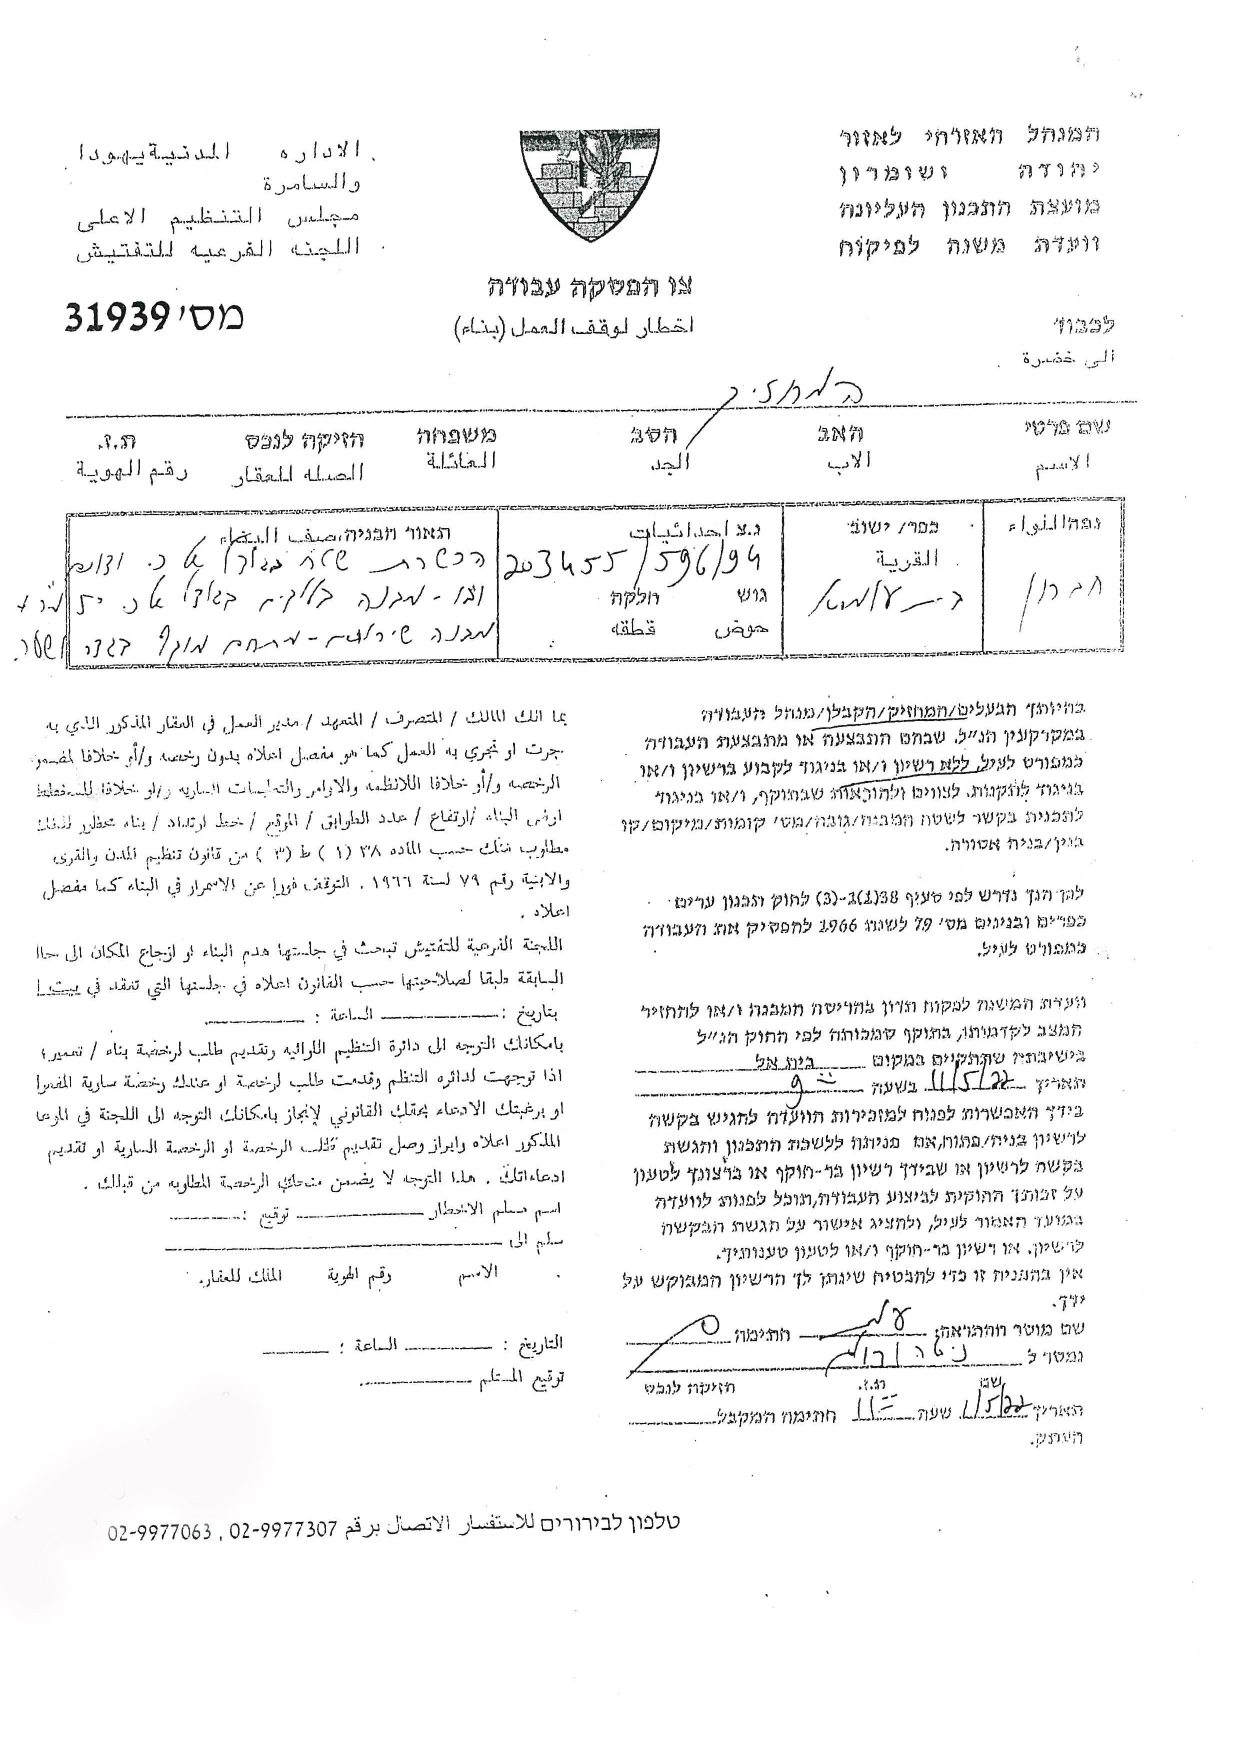 המנהל האזרחי לאזור
יהודה ושומרון
מועצת התכנון העליונה
וועדת משנה לפיקוח
الاداره المدنية يهودا
والسامرة
مجلس التنظيم الاعلى
اللجنه الفرعيه للتفتيش
צו הפסקה עבודה
اخطار لوقف العمل (بناء)
מס' 31939
לכבוד
الى حضرة
המחזיק
שם פרטי האב הסב משפחה הזיקה לנכס ת.ז.
الاسم الاب الجد العائلة الصله للعقار رقم الهوية
נפה اللواء
חברון
כפר/ ישוב
القرية
בית עלמא
נ.צ احداثيات
203455/596194
גוש חלקה
حوض قطعه
תאור הבניה, صف البناء
הכשרת שטח בגודל
מבנה בלוקים בגודל
מבנה שירותים - מתחם מוקף בגדר ושער.
בהיותך הבעלים/המחזיק/הקבלן/מנהל העבודה
במקרקעין הנ"ל, שבהם התבצעה או מתבצעת העבודה
כמפורט לעיל, ללא רשיון ו/או בניגוד לקבוע ברשיון ו/או
בניגוד לתקנות, לצווים ולהוראות שבתוקף, ו/או בניגוד
לתכנית בקשר לשטח המבניה/גובה/מס' קומות/מיקום/קו
בנין/בניה אסורה.
לכן הנך נדרש לפי סעיף 38(1)ו-(3) לחוק תכנון ערים
כפרים ובנינים מס' 79 לשנת 1966 להפסיק את העבודה
כמפורט לעיל.
וועדת המשנה לפקוח תדון בהריסת המבנה ו/או להחזיר
המצב לקדמותו, בתוקף סמכותה לפי החוק הנ"ל
בישיבתה שתתקיים במקום בית אל
תאריך 11/5/22 בשעה 9:00
בידך האפשרות לפנות למזכירות הוועדה להגיש בקשה
לרשיון בניה/פתוח, אם פנייתה ללשכת התכנון והגשת
בקשה לרשיון או שבידך רשיון בר-תוקף או ברצונך לטעון
על זכותך החוקית לביצוע העבודה, תוכל לפנות לוועדה
במועד האמור לעיל, ולהציג אישור על הגשת הבקשה
לרשיון, או רשיון בר-תוקף ו/או לטעון טענותיך.
אין בהפניה זו כדי להבטיח שינתן לך הרשיון המבוקש על
ידך.
שם מוסר ההתראה: חתימה
נמסר ל
שם ת.ז. הזיקה לנכס
תאריך 1/5/22 שעה 11:00 חתימה המקבל
העתק.
بما انك المالك / المتصرف / المتعهد / مدير العمل في العقار المذكور الذي به
جرت او تجري به العمل كما هو مفصل اعلاه بدون رخصه و/أو خلافا لمضمون
الرخصه و/أو خلافا اللانظمه والاوامر والتعليمات الساريه و/او خلافا للمخطط
ارض البناء /ارتفاع / عدد الطوابق / الموقع / خط ارتداد / بناء محظور لذلك
مطلوب منك حسب الماده ٣٨ (١) ط (٣) من قانون تنظيم المدن والقرى
والابنية رقم ٧٩ لسنة ١٩٦٦ . التوقف فورا عن الاسمرار في البناء كما مفصل
اعلاه .
اللجنة الفرعية للتفتيش تبحث في جلستها هدم البناء او ازجاع المكان الى حالا
السابقة طبقا لصلاحيتها حسب القانون اعلاه في جلستها التي تنعقد في بيت ا
بتاريخ : الساعة :
بامكانك التوجه الى دائرة التنظيم اللوائيه وتقديم طلب لرخصة بناء / تعمير؛
اذا توجهت لدائره التنظم وقدمت طلب لرخصة او عندك رخصة سارية المفعوا
او برغبتك الادعاء بحقك القانوني لإنجاز بامكانك التوجه الى اللجنة في الموعا
المذكور اعلاه وابراز وصل تقديم طلب الرخصة او الرخصة السارية او تقديم
ادعاءاتك . هذا التوجه لا يضمن منحك الرخصة المطلوبه من قبلك .
اسم مسلم الاخطار توقيع :
سلم الى
الاسم رقم الهوية الملك للعقار.
التاريخ : الساعة :
توقيع المستلم
טלפון לבירורים للاستفسار الاتصال برقم 02-9977307 , 02-9977063